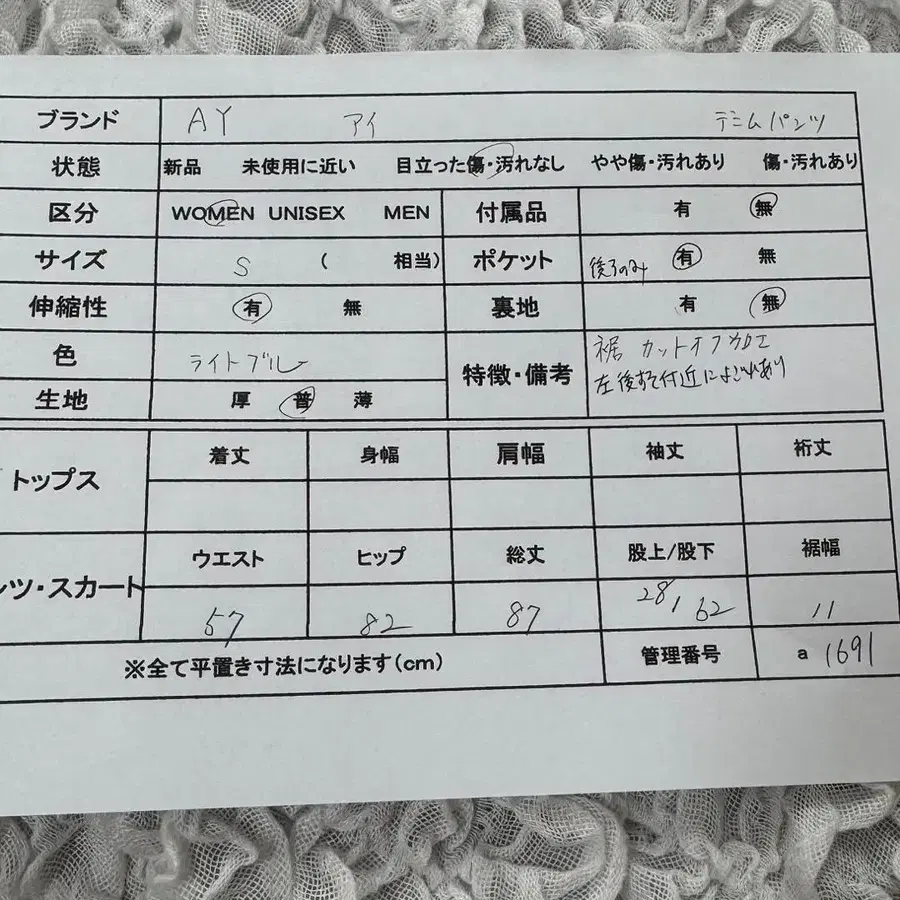 ブランド AY アイ デニムパンツ
状態 新品 未使用に近い 目立った傷・汚れなし やや傷・汚れあり 傷・汚れあり
区分 WOMEN UNISEX MEN 付属品 有 無
サイズ S ( 相当) ポケット 後ろのみ 有 無
伸縮性 有 無 裏地 有 無
色 ライトブルー 特徴・備考 裾 カットオフ加工
左後すそ付近によごれあり
生地 厚 普 薄
トップス 着丈 身幅 肩幅 袖丈 裄丈
ンツ・スカート ウエスト ヒップ 総丈 股上/股下 裾幅
57 82 87 28/62 11
※全て平置き寸法になります(cm) 管理番号 a 1691